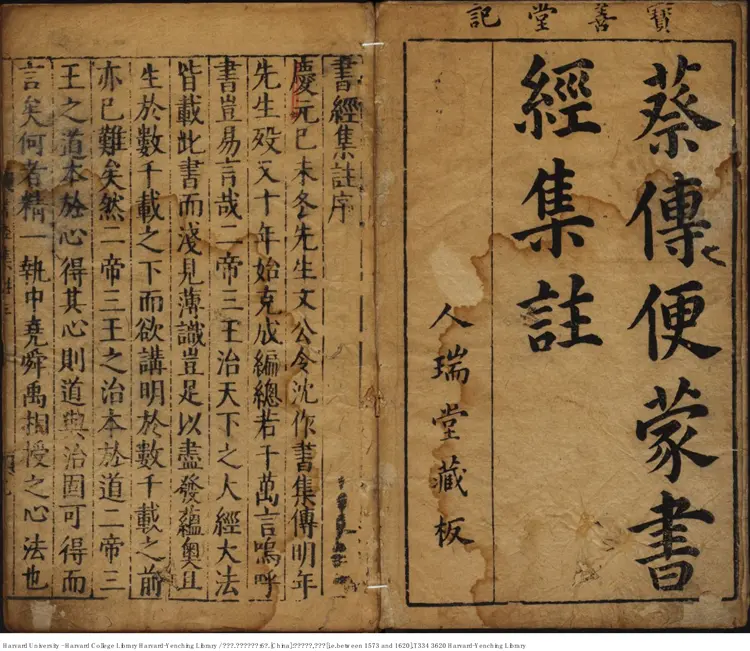 寳善堂記
蔡傳便蒙書
經集註
人瑞堂藏板
書經集註序
慶元己未冬先生文公令沈作書集傳明年
先生殁又十年始克成編總若干萬言嗚呼
書豈易言哉二帝三王治天下之大經大法
皆載此書而淺見薄識豈足以盡發蘊奥且
生於數千載之下而欲講明於數千載之前
亦已難矣然二帝三王之治本於道二帝三
王之道本於心得其心則道與治固可得而
言矣何者精一執中堯舜禹相授之心法也
Harvard University - Harvard College Library Harvard-Yenching Library / ???.?????? 6?.[China]:?????,???[i.e.between 1573 and 1620],T334 3620 Harvard-Yenching Library